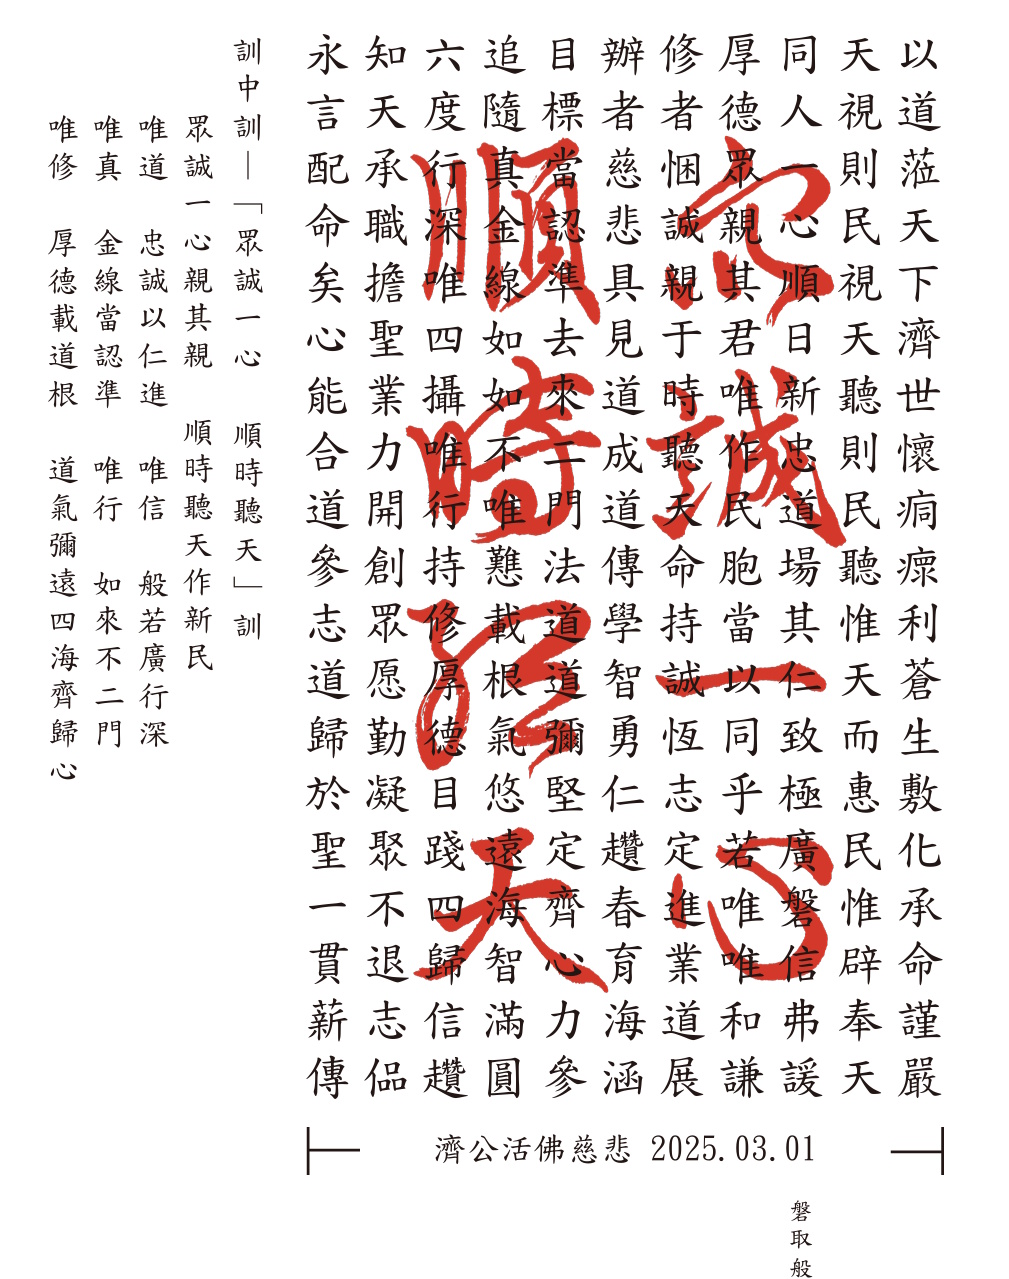 以道蒞天下濟世懷痌瘝利蒼生敷化承命謹嚴
天視則民視天聽則民聽惟天而惠民惟辟奉天
同人一心順日新忠道場其仁致極廣磐信弗諼
厚德眾親其君唯作民胞當以同乎若唯唯和謙
修者悃誠親于時聽天命持誠恆志定進業道展
辦者慈悲具見道成道傳學智勇仁趲春育海涵
目標當認準去來二門法道道彌堅定齊心力參
追隨真金線如如不唯載根氣悠遠海智滿圓
六度行深唯四攝唯行持修厚德目踐四歸信趲
知天承職擔聖業力開創眾愿勤凝聚不退志偘
永言配命矣心能合道參志道歸於聖一貫薪傳
眾誠一心
順時聽天
訓中訓—「眾誠一心 順時聽天」訓
眾誠一心親其親 順時聽天作新民
唯道 忠誠以仁進 唯信 般若廣行深
唯真 金線當認準 唯行 如來不二門
唯修 厚德載道根 道氣彌遠四海齊歸心
濟公活佛慈悲 2025.03.01
磐取般